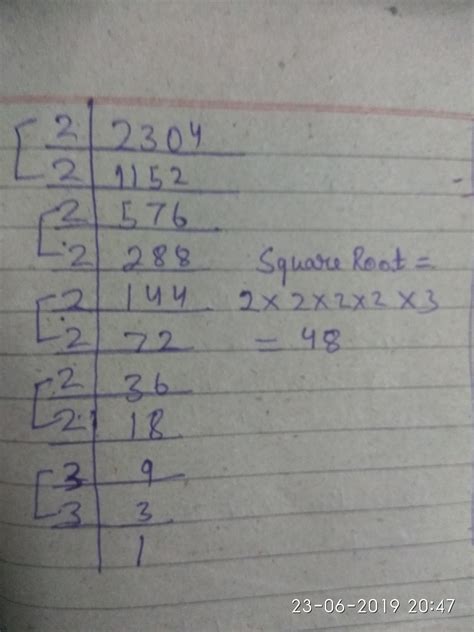 2 2304
2 1152
2 576
2 288
2 144
2 72
2 36
2 18
3 9
3 3
1
Square Root =
2 × 2 × 2 × 2 × 3
= 48
23-06-2019 20:47